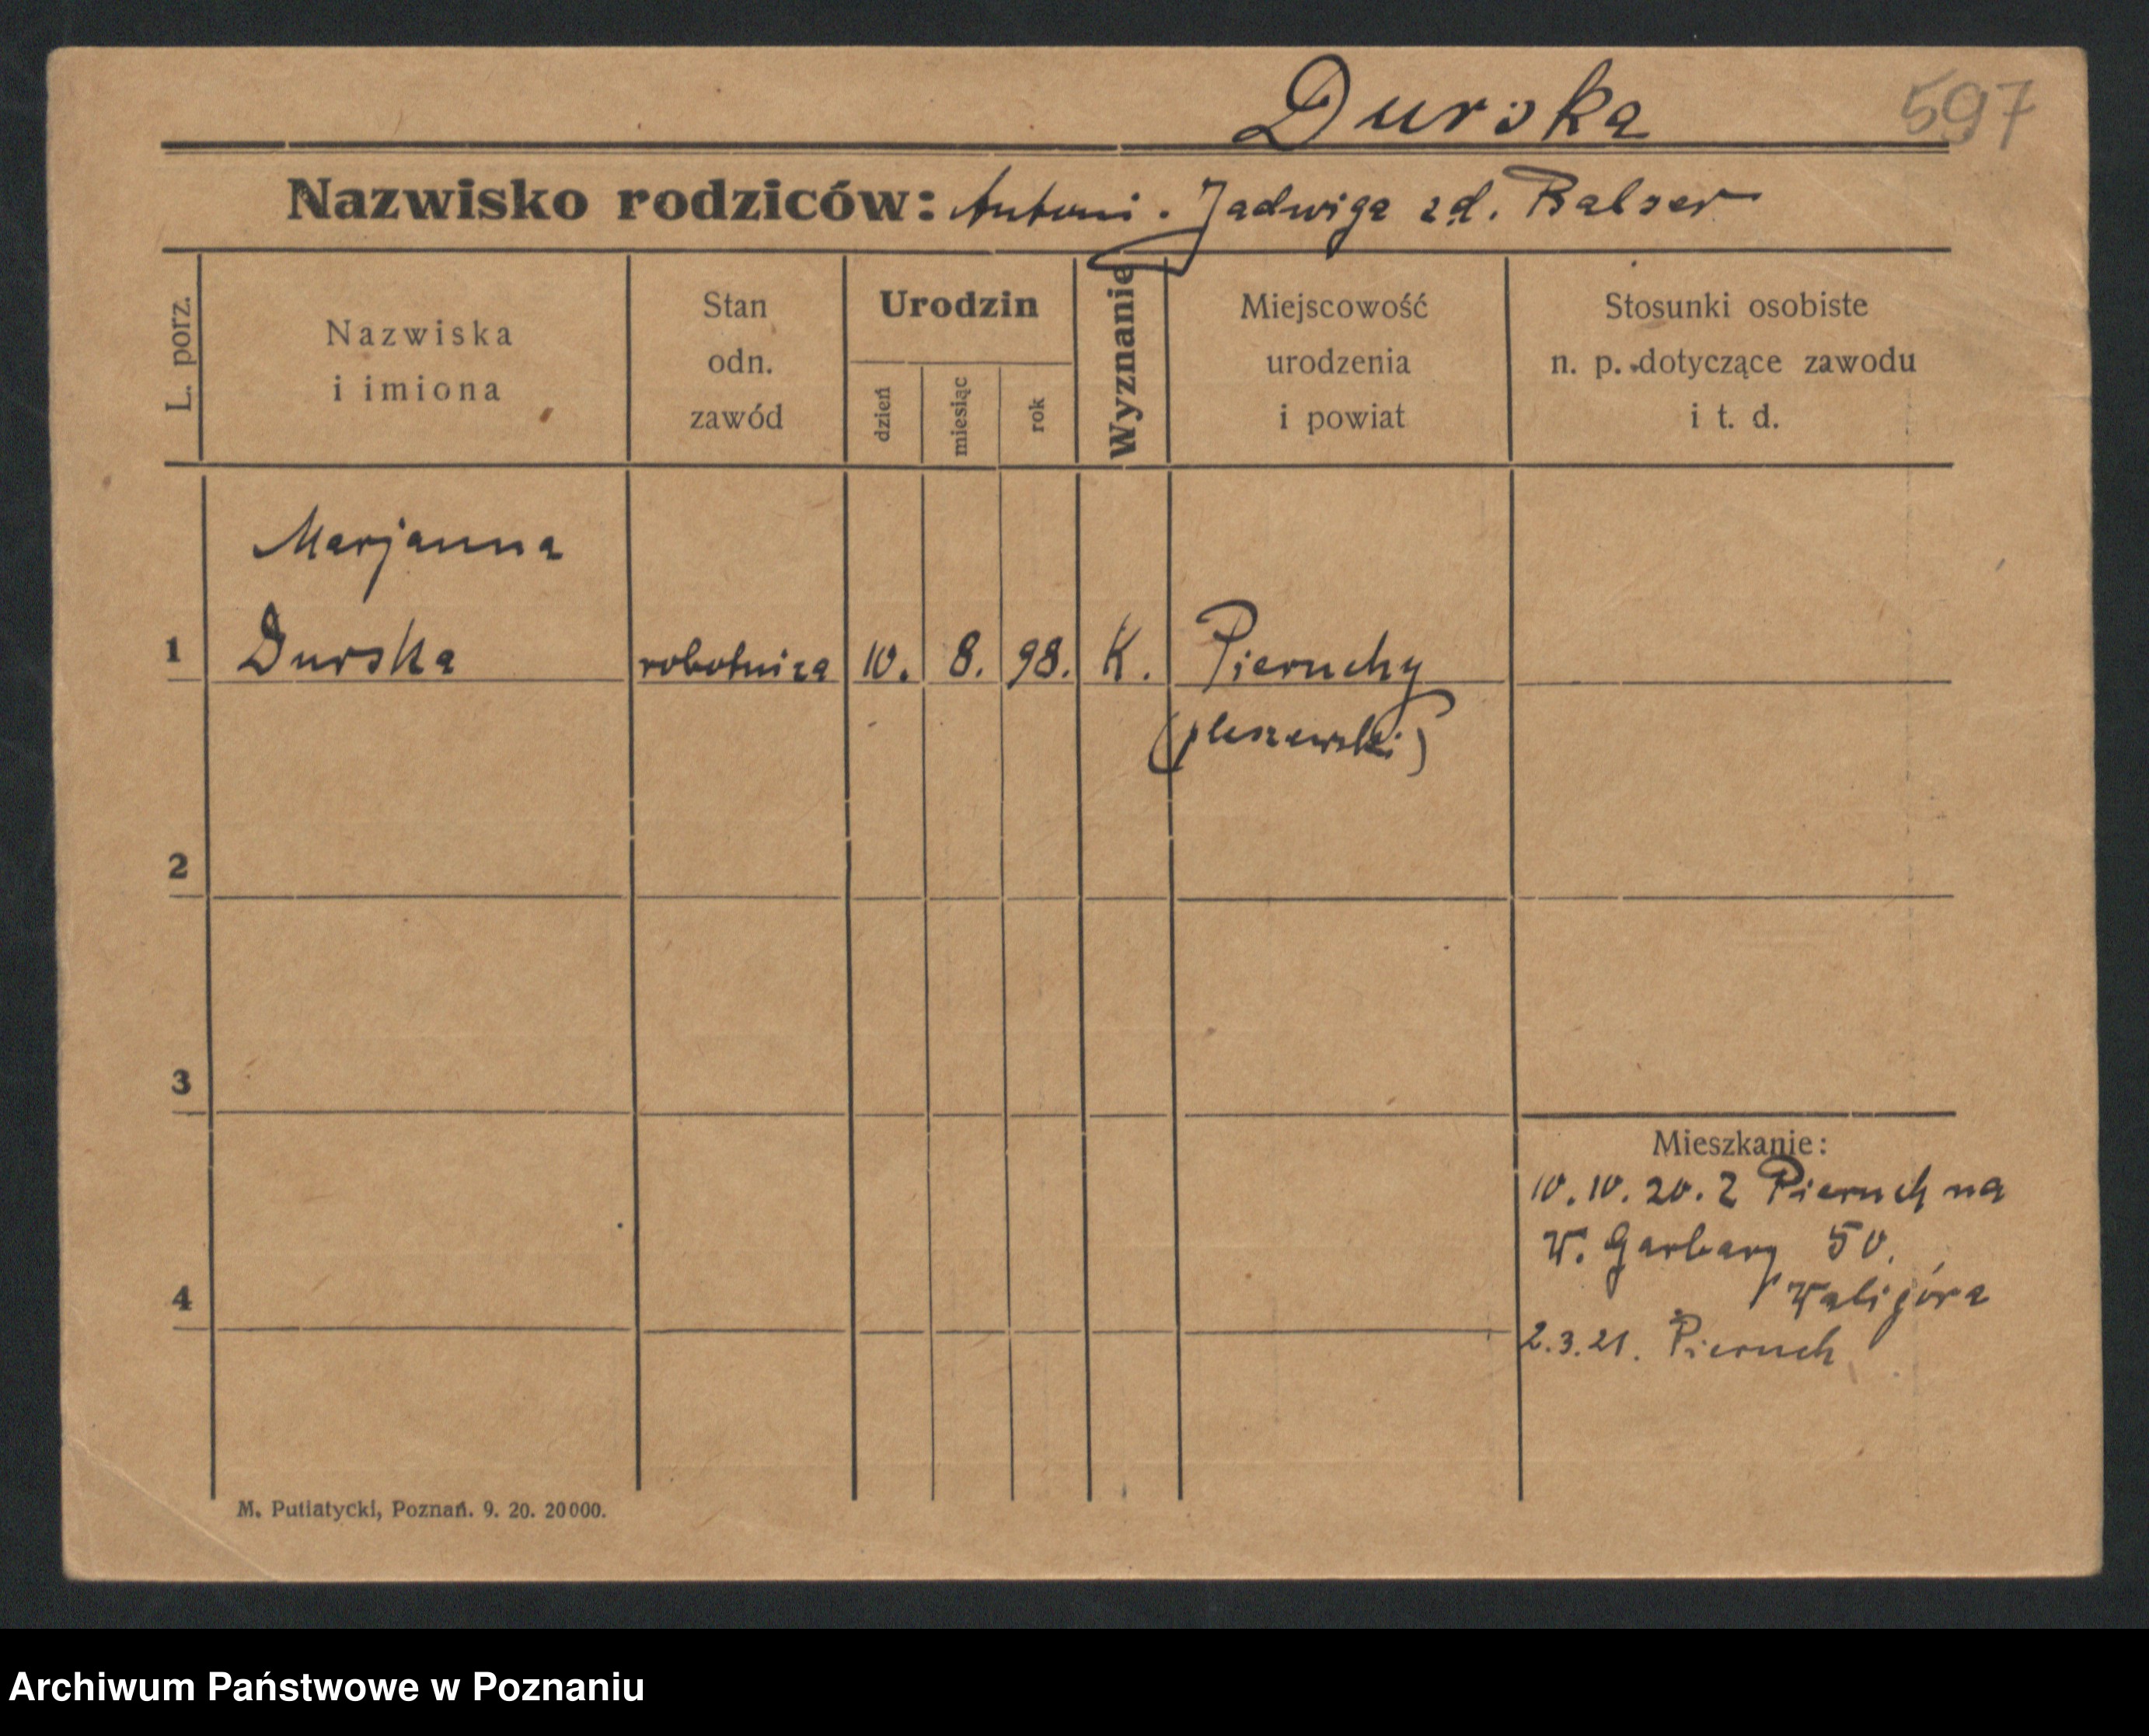 Durska 597
Nazwisko rodziców: Antoni. Jadwiga zd. Balser
L. porz.
Nazwiska
i imiona
Stan
odn.
zawód
Urodzin
dzień
miesiąc
rok
Wyznanie
Miejscowość
urodzenia
i powiat
Stosunki osobiste
n. p. dotyczące zawodu
i t. d.
Marjanna
1 Durska robotnica 10. 8. 98. K. Pieruchy
(pleszewski)
2
3
Mieszkanie:
10. 10. 20. z Pieruch na
W. Garbary 50.
Waligóra
4
2.3.21. Pieruch
M. Putiatycki, Poznań. 9. 20. 20000.
Archiwum Państwowe w Poznaniu